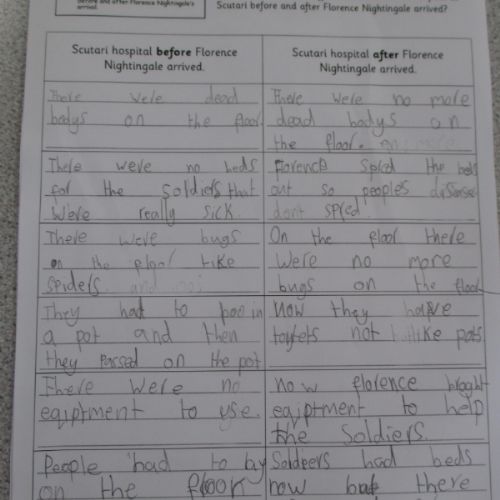 before and after Florence Nightingale's
arrival.
Scutari before and after Florence Nightingale arrived?
Scutari hospital before Florence
Nightingale arrived.
Scutari hospital after Florence
Nightingale arrived.
There were dead
bodys on the floor
There were no more
dead bodys on
the floor.
There were no beds
for the Soldiers that
were really sick.
Florence spred the beds
out so peoples disease
dont spred.
There were bugs
on the floor like
spiders.
On the floor there
were no more
bugs on the floor
They had to poo in
a pot and then
they passed on the pot
now they have
toylets not like pots
There were no
eqiptment to use.
now florence broght
eqiptment to help
the Soldiers.
People had to
on the floor
Soldeers had beds
now but there